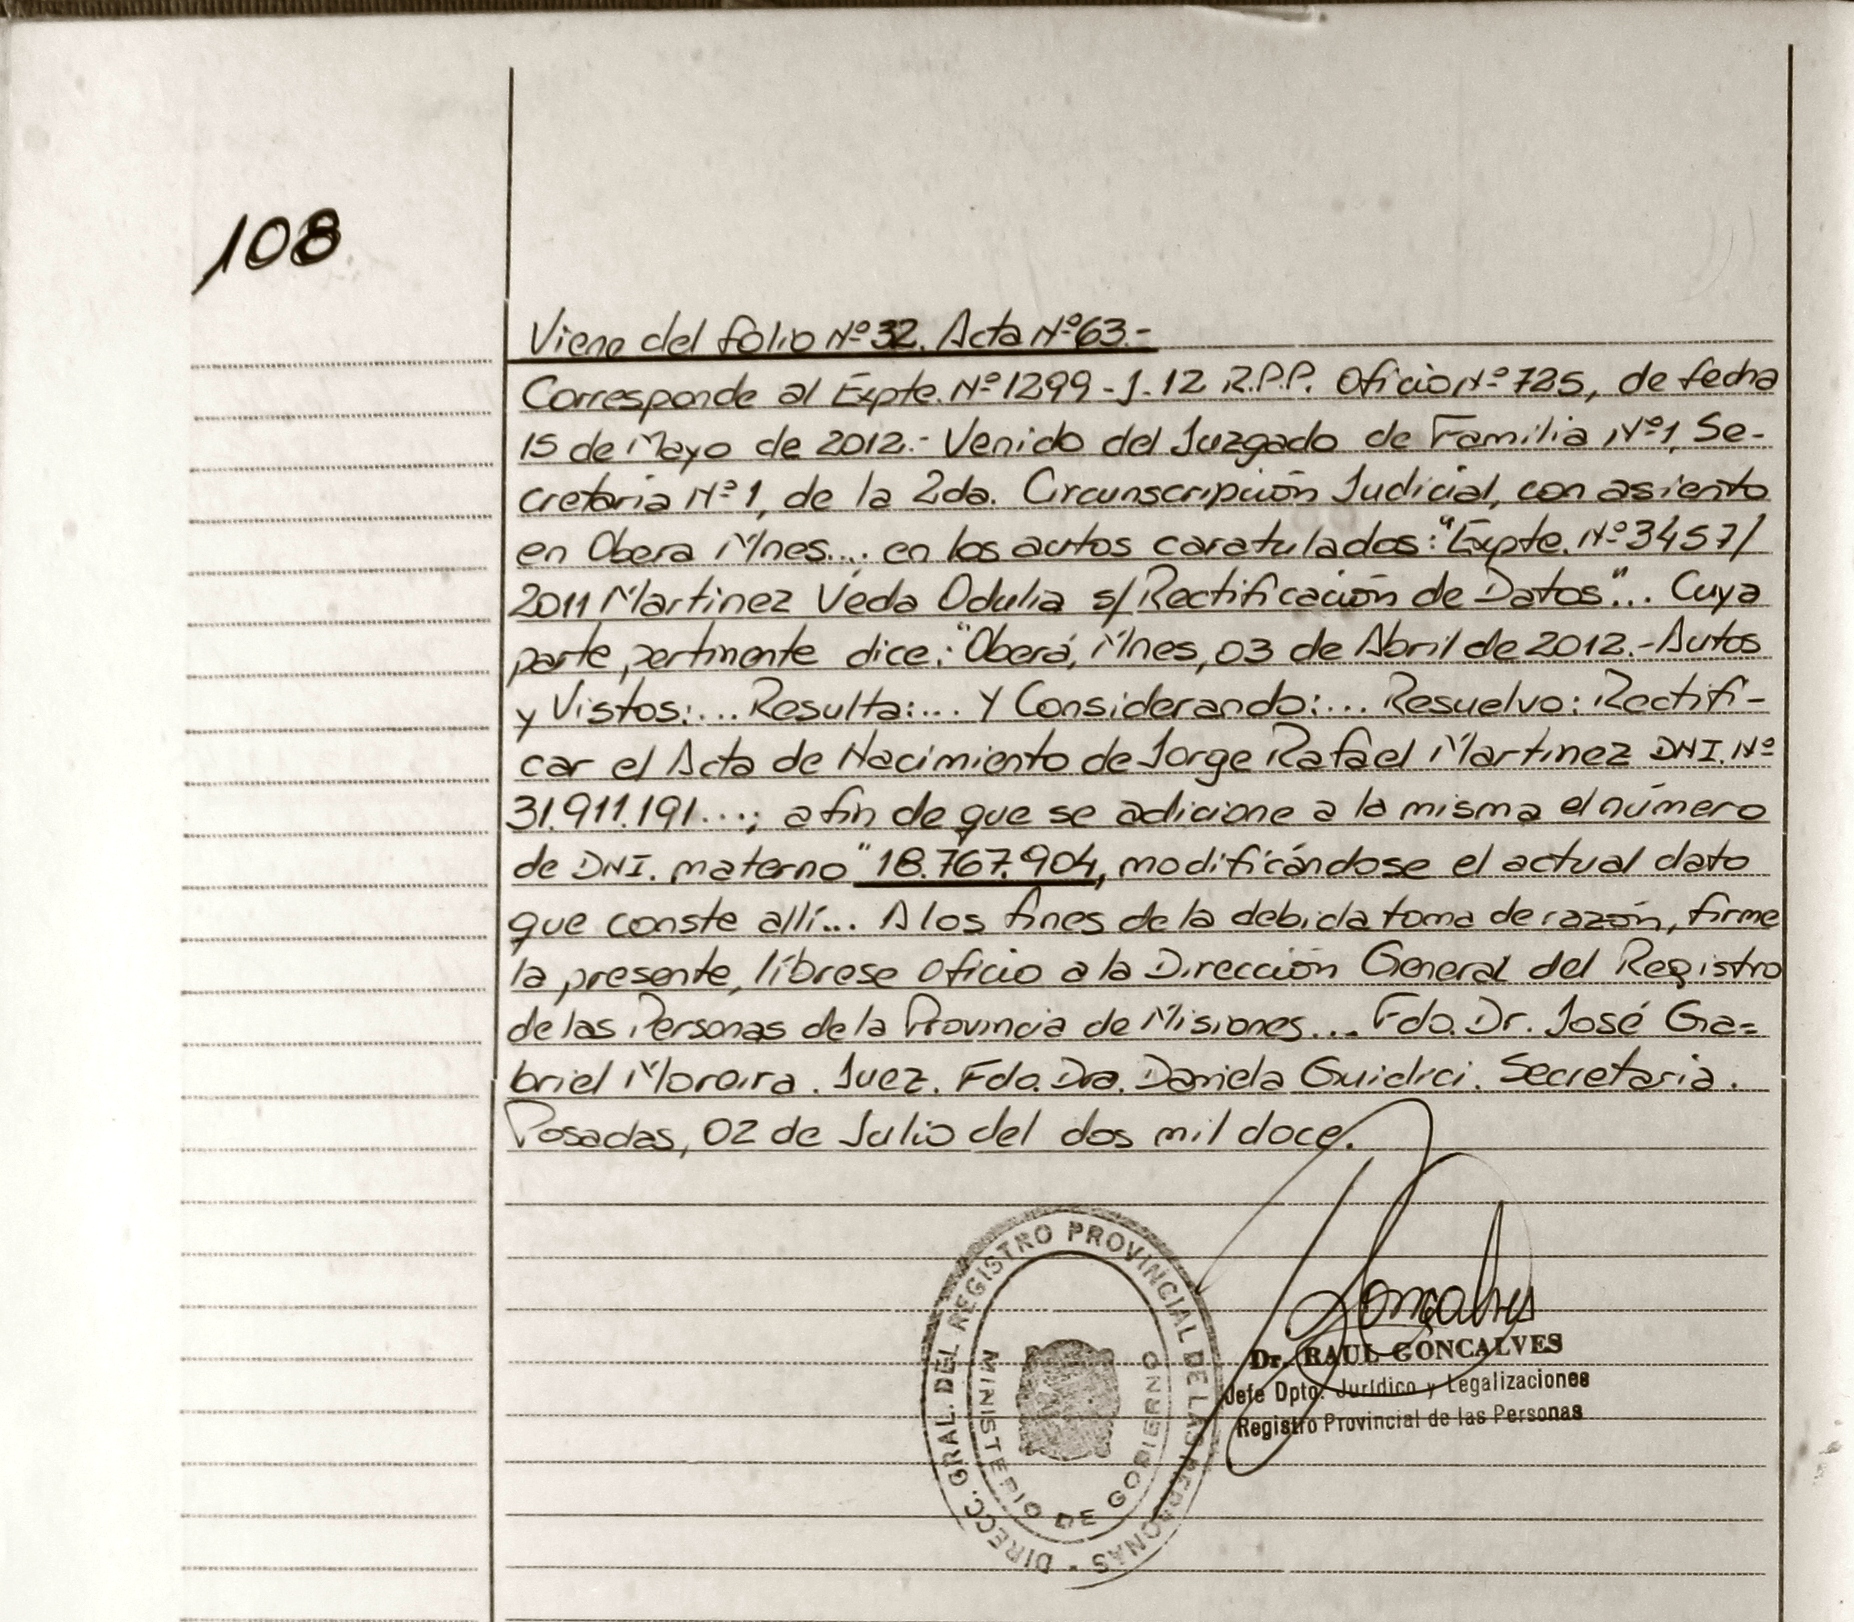 108
Viene del folio Nº 32. Acta Nº 63.-
Corresponde al Expte. Nº 1299 - J - 12 R.P.P. Oficio Nº 725, de fecha
15 de Mayo de 2012.- Venido del Juzgado de Familia Nº 1, Se-
cretaria Nº 1, de la 2da. Circunscripción Judicial, con asiento
en Obera Mnes...; en los autos caratulados: "Expte. Nº 3457/
2011 Martinez Veda Odulia s/ Rectificación de Datos"... Cuya
parte pertinente dice: "Oberá, Mnes, 03 de Abril de 2012.- Autos
y Vistos:... Resulta:... Y Considerando:... Resuelvo: Rectifi-
car el Acta de Nacimiento de Jorge Rafael Martinez DNI. Nº
31.911.191...; a fin de que se adicione a la misma el número
de DNI. materno "18.767.904, modificándose el actual dato
que conste allí... A los fines de la debida toma de razón, firme
la presente, líbrese oficio a la Dirección General del Registro
de las Personas de la Provincia de Misiones... Fdo. Dr. José Ga=
briel Moreira. Juez. Fdo. Dra. Daniela Guidici. Secretaria.
Posadas, 02 de Julio del dos mil doce.
DIRECC. GRAL. DEL REGISTRO PROVINCIAL DE LAS PERSONAS -
MINISTERIO DE GOBIERNO
Goncalves
Dr. RAUL GONCALVES
Jefe Dpto. Jurídico y Legalizaciones
Registro Provincial de las Personas